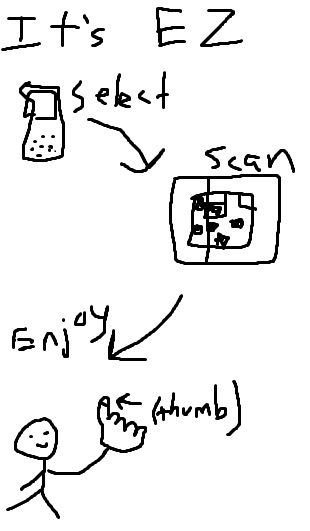 It's EZ
Select
Scan
Enjoy
(thumb)